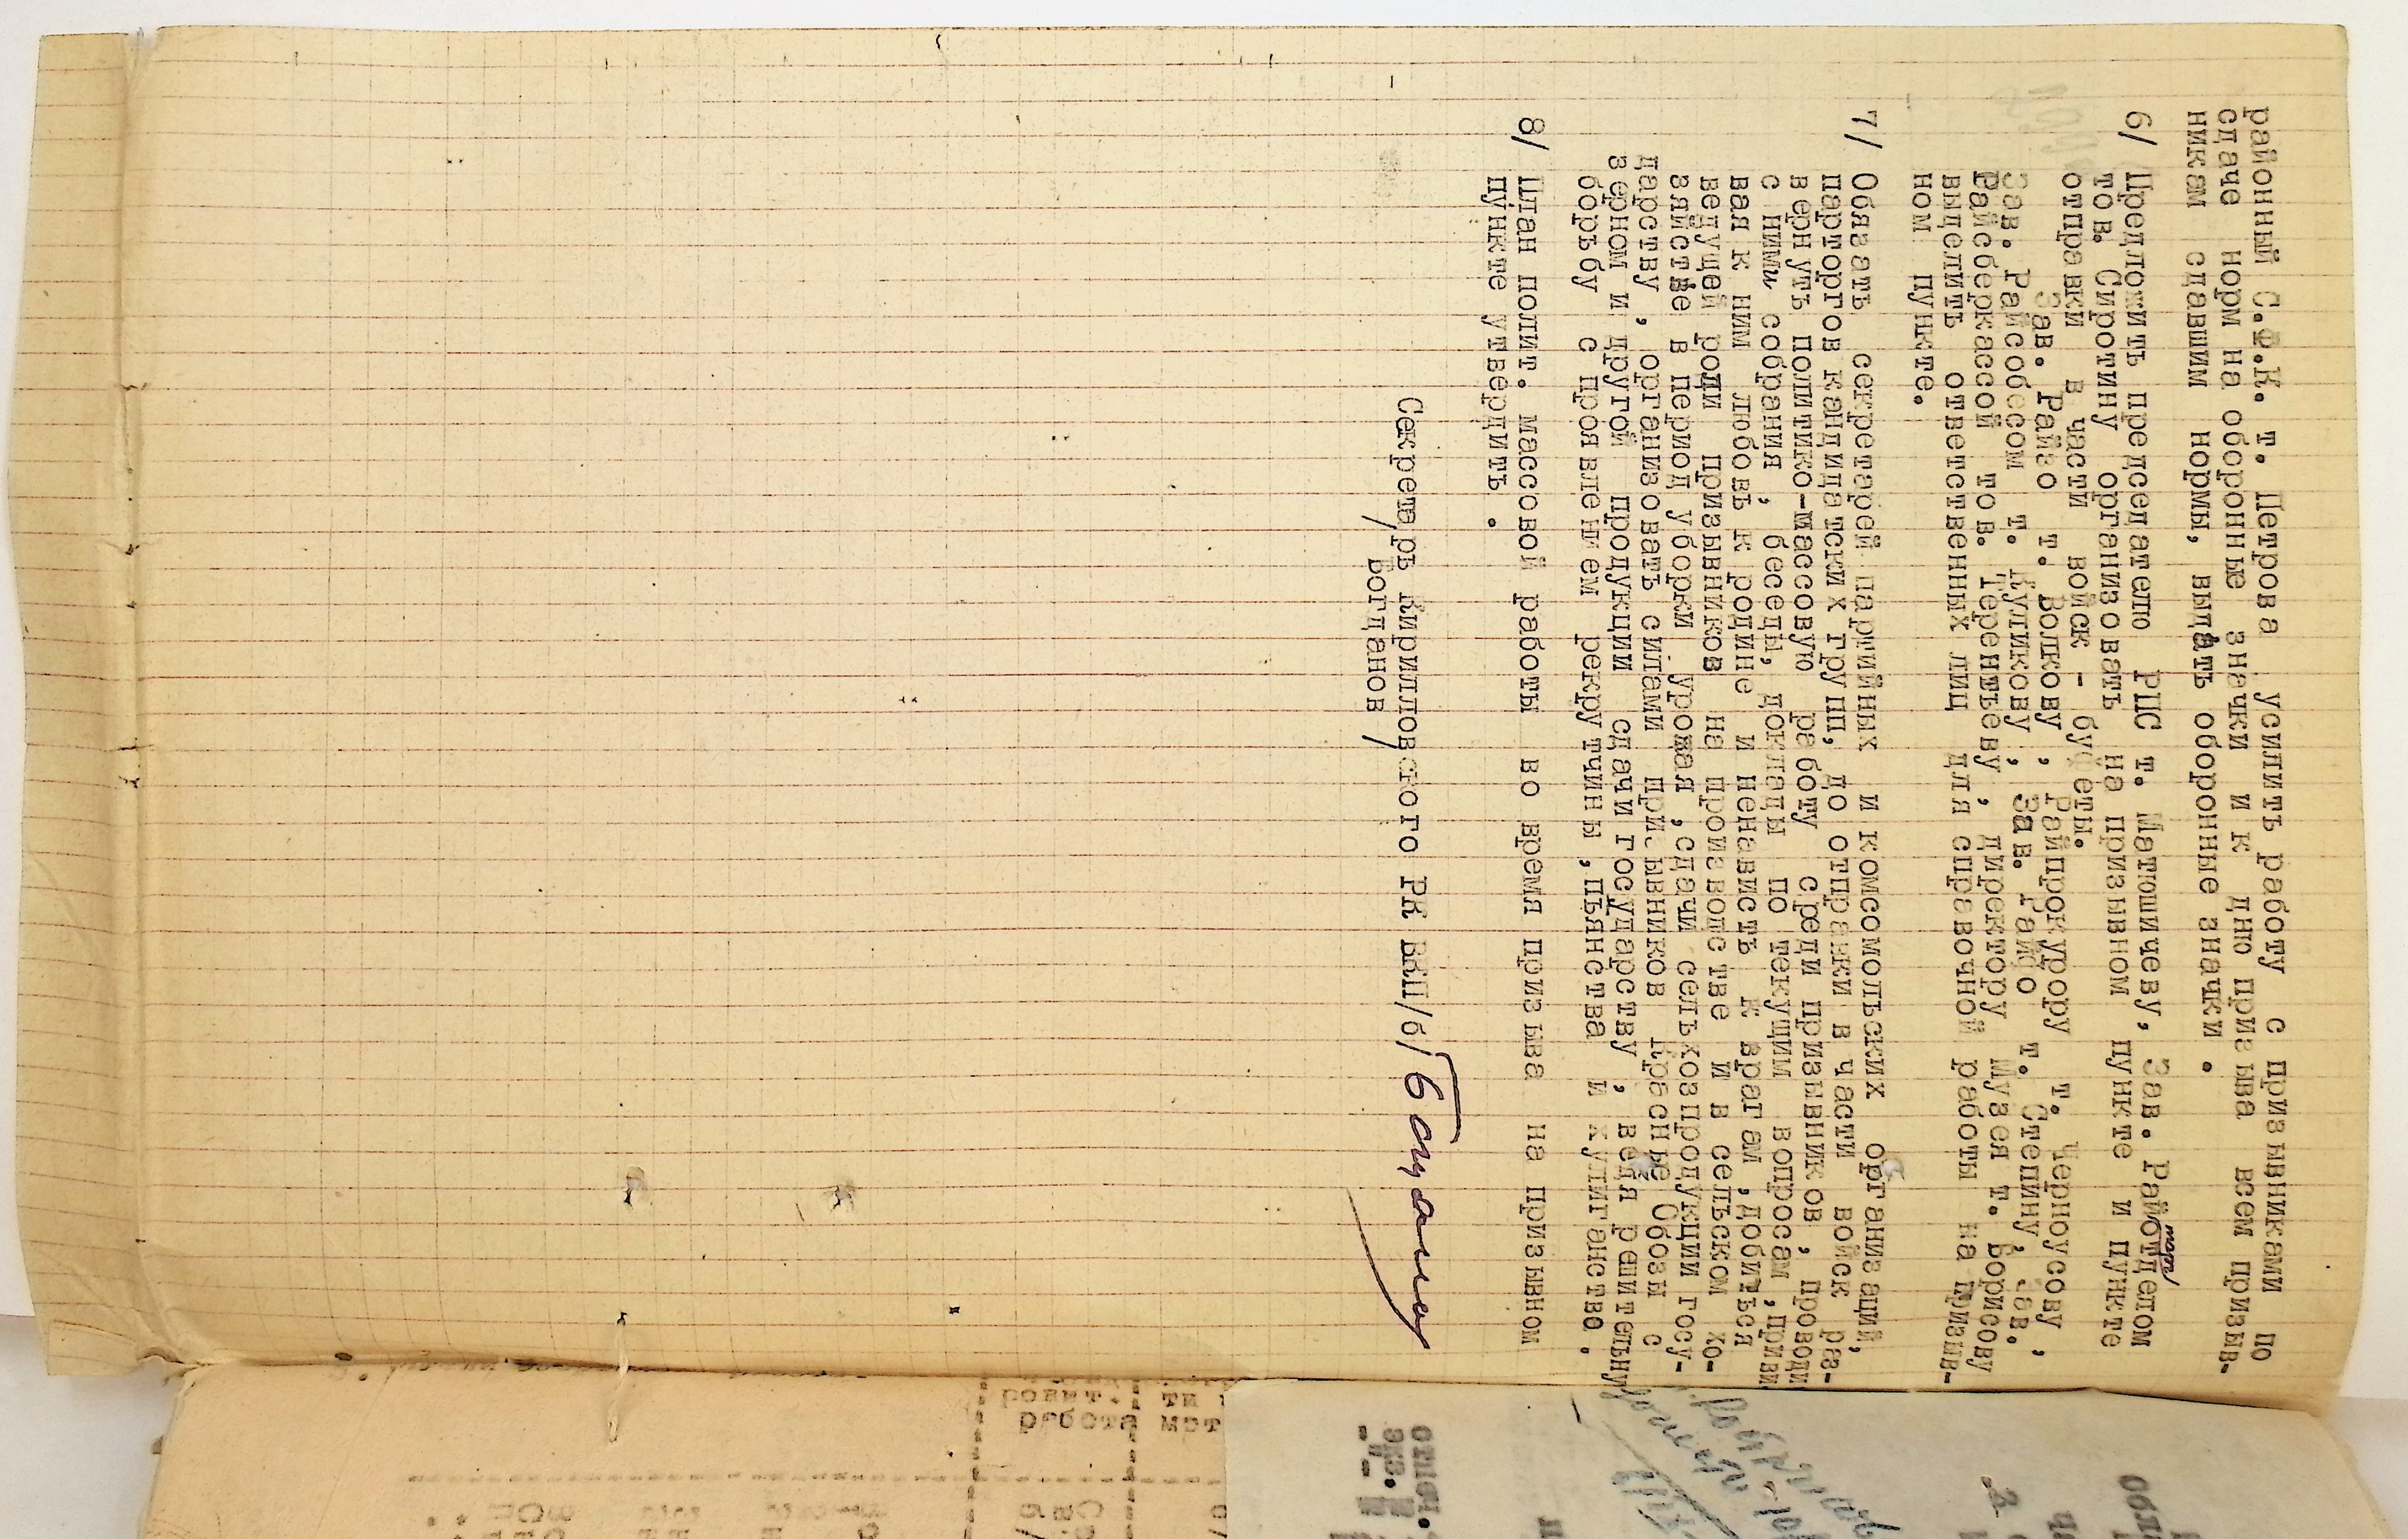 районный С.Ф.К. т. Петрова усилить работу с призывниками по
сдаче норм на оборонные значки и к дню призыва всем призыв-
никам сдавшим нормы, выдать оборонные значки .
6/ Предложить председателю РПС т. Матюшичеву, Зав. Райотделом
торг
тов. Сиротину организовать на призывном пункте и пункте
отправки в части войск - буфеты.
Зав. Райзо т. Волкову, Райпрокурору т. Черноусову,
Зав. Райсобесом т. Куликову, Зав. Райо т. Степину, Зав.
Райсберкассой тов. Терентьеву, директору Музея т. Борисову
выделить ответственных лиц для справочной работы на призыв-
ном пункте.
7/ Обязать секретарей партийных и комсомольских организаций,
парторгов кандидатских групп, до отправки в части войск раз-
вернуть политико-массовую работу среди призывников, проводи
с ними собрания, беседы, доклады по текущим вопросам, приви
вая к ним любовь к родине и ненависть к врагам, добиться
ведущей роли призывников на производстве и в сельском хо-
зяйстве в период уборки урожая, сдачи сельхозпродукции госу-
дарству, организовать силами призывников Красные Обозы с
зерном и другой продукции сдачи государству, ведя решительну
борьбу с проявлением рекрутчины, пьянства и хулиганство.
8/ План полит. массовой работы во время призыва на призывном
пункте утвердить .
Секретарь Кирилловского РК ВКП/б/ Богданов
/Богданов/
совет. ти
работа мст